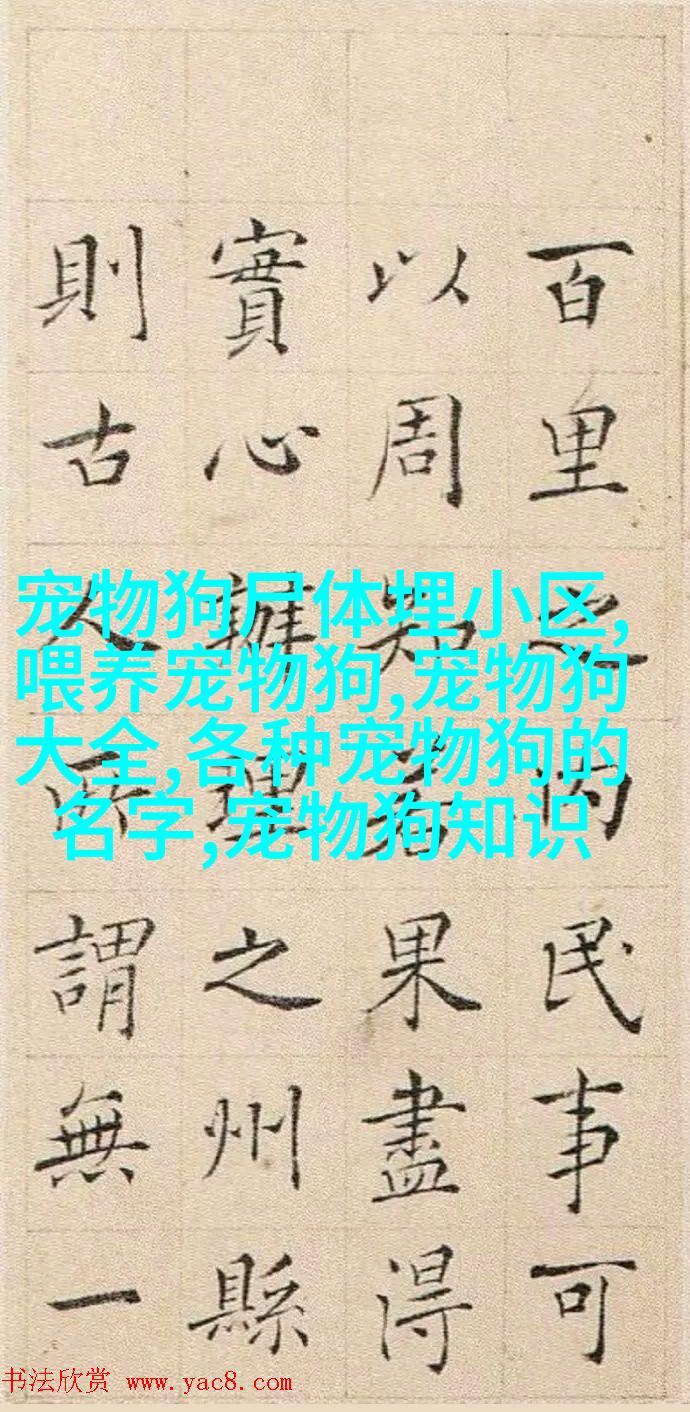 百里之内民事可
以周知若果盡得
實心辦理之州縣
則古人所謂無一
宠物狗尸体埋小区,
喂养宠物狗,宠物狗
大全,各种宠物狗的
名字,宠物狗知识
书法欣赏 www.yac8.com